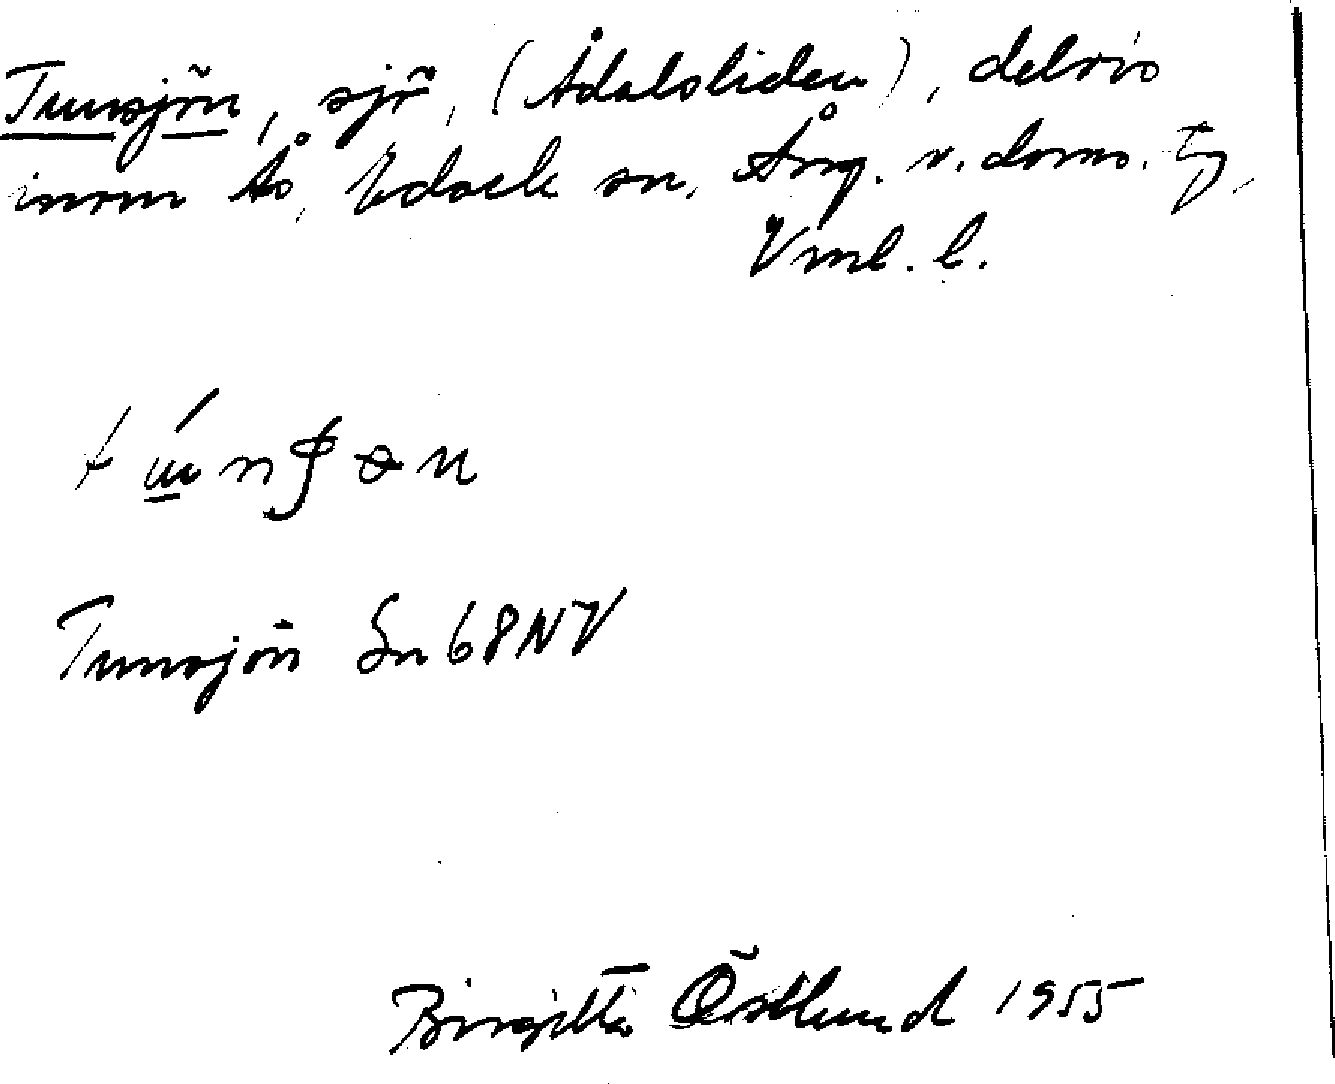 Tunsjön, sjö, (Ådalsliden), delvis
inom Ås, Edsele sn, Ång. v. doms. tg,
Vnl. l.
Tunsjön Sn 68NV
Birgitta Östlund 1955